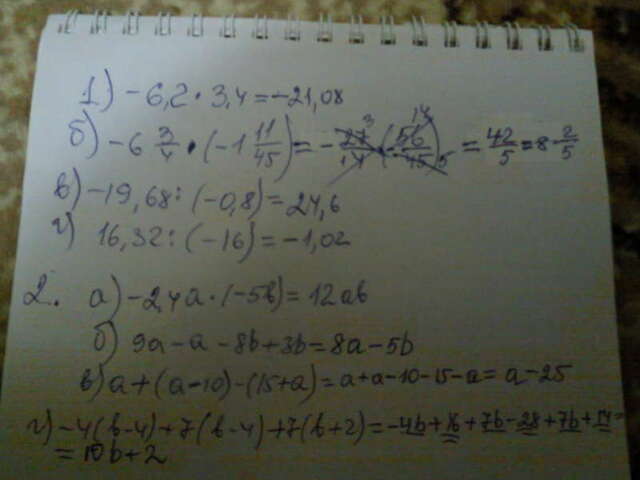 1) -6,2 · 3,4 = -21,08
б) -6 3/4 · (-1 11/45) = - 27/14 · (- 56/45) = 42/5 = 8 2/5
в) -19,68 : (-0,8) = 24,6
г) 16,32 : (-16) = -1,02
2. а) -2,4a · (-5b) = 12ab
б) 9a - a - 8b + 3b = 8a - 5b
в) a + (a - 10) - (15 + a) = a + a - 10 - 15 - a = a - 25
г) -4(b-4) + 7(b-4) + 7(b+2) = -4b + 16 + 7b - 28 + 7b + 14 =
= 10b + 2